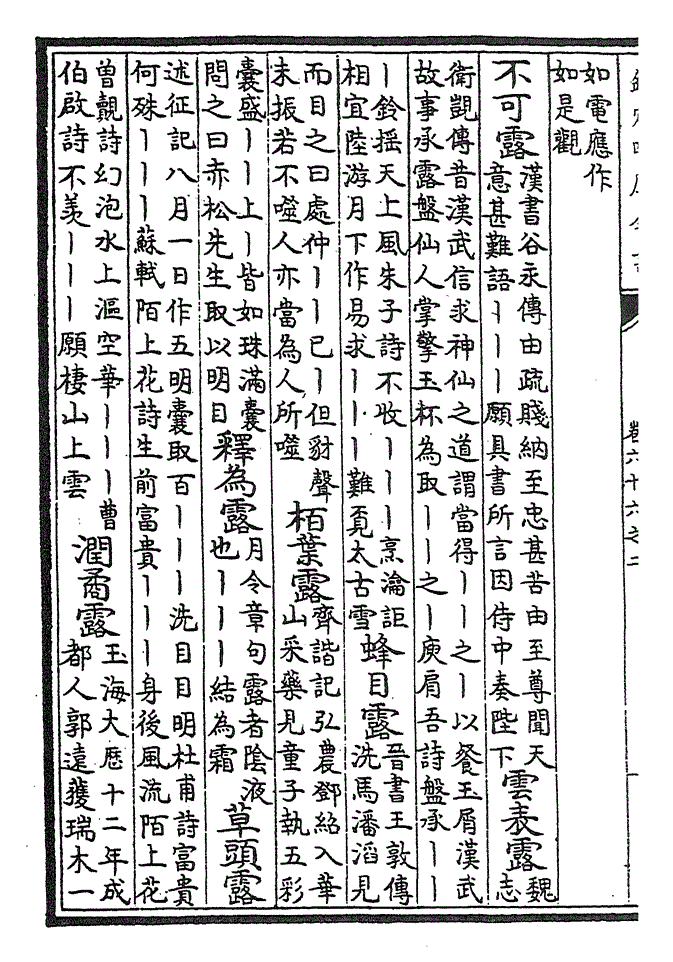 欽定四庫全書
卷六十六之二
如電應作
如是觀
不可露
漢書谷永傳由疏賤納至忠甚苦由至尊聞天
意甚難語丨丨丨願具書所言因侍中奏陛下
雲表露
魏
志
衛覬傳昔漢武信求神仙之道謂當得丨丨之丨以餐玉屑漢武
故事承露盤仙人掌擎玉杯為取丨丨之丨庾肩吾詩盤承丨丨
丨鈴搖天上風朱子詩不收丨丨丨烹瀹詎
相宜陸游月下作易求丨丨丨難覓太古雪
蜂目露
晉書王敦傳
洗馬潘滔見
而目之曰處仲丨丨已丨但豺聲
未振若不噬人亦當為人所噬
栢葉露
齊諧記弘農鄧紹入華
山采藥見童子執五彩
囊盛丨丨上丨皆如珠滿囊
問之曰赤松先生取以明目
釋為露
月令章句露者陰液
也丨丨丨結為霜
草頭露
述征記八月一日作五明囊取百丨丨丨洗目目明杜甫詩富貴
何殊丨丨丨蘇軾陌上花詩生前富貴丨丨丨身後風流陌上花
曾覿詩幻泡水上漚空華丨丨丨曹
伯啟詩不羨丨丨丨願棲山上雲
潤矞露
玉海大厯十二年成
都人郭遠獲瑞木一